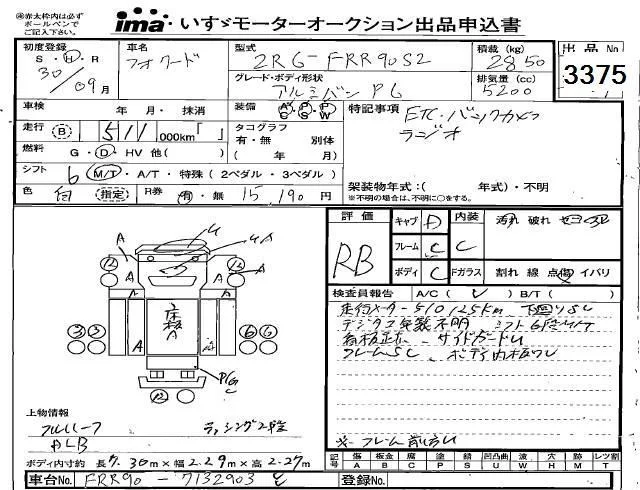 ㊟赤太枠内は必ず
ボールペンで
ご記入下さい。
ima いすゞモーターオークション出品申込書
初度登録 車名 型式 積載 (kg) 出品No
S・H・R フォワード 2RG-FRR90S2 2850 3375
30/09月 グレード・ボディ形状 排気量 (cc)
アルミバン PG 5200
車検 年 月・ 抹消 装備 A/C P/S P/W 特記事項
走行 B 511 000km「 」 タコグラフ ETC・バックカメラ
有・無 別体 ラジオ
燃料 G・D・HV 他( ) ( 年 月)
シフト 6 M/T・A/T・特殊(2ペダル・3ペダル) 架装物年式:( 年式)・不明
※不明の場合は、不明に○をする。
色 白 (指定) R券 有・無 15,190円
評価 キャブ D 内装 汚れ 破れ
RB フレーム C C
ボディ C Fガラス 割れ 線 点傷 イバリ
検査員報告 A/C( ) B/T( )
走行メーター510125km 下回りSU
デジタコ年数不明 シフト6F M/T
サイドガードU
フレームSC ボディ内板ワレ
A
U
A
12
12
A
A
A
A
A
床板
A
3 3
6 6
PG
12
上物情報
フルハーフ ラッシング2段
ALB
※フレーム
ボディ内寸約 長7.30m×幅2.29m×高2.27m
記号 傷 板金 腐 塗装 錆 凹凸曲 波 穴 跡 レツ割
A B C P S U W H M T
車台No. FRR90-7132903 登録No.